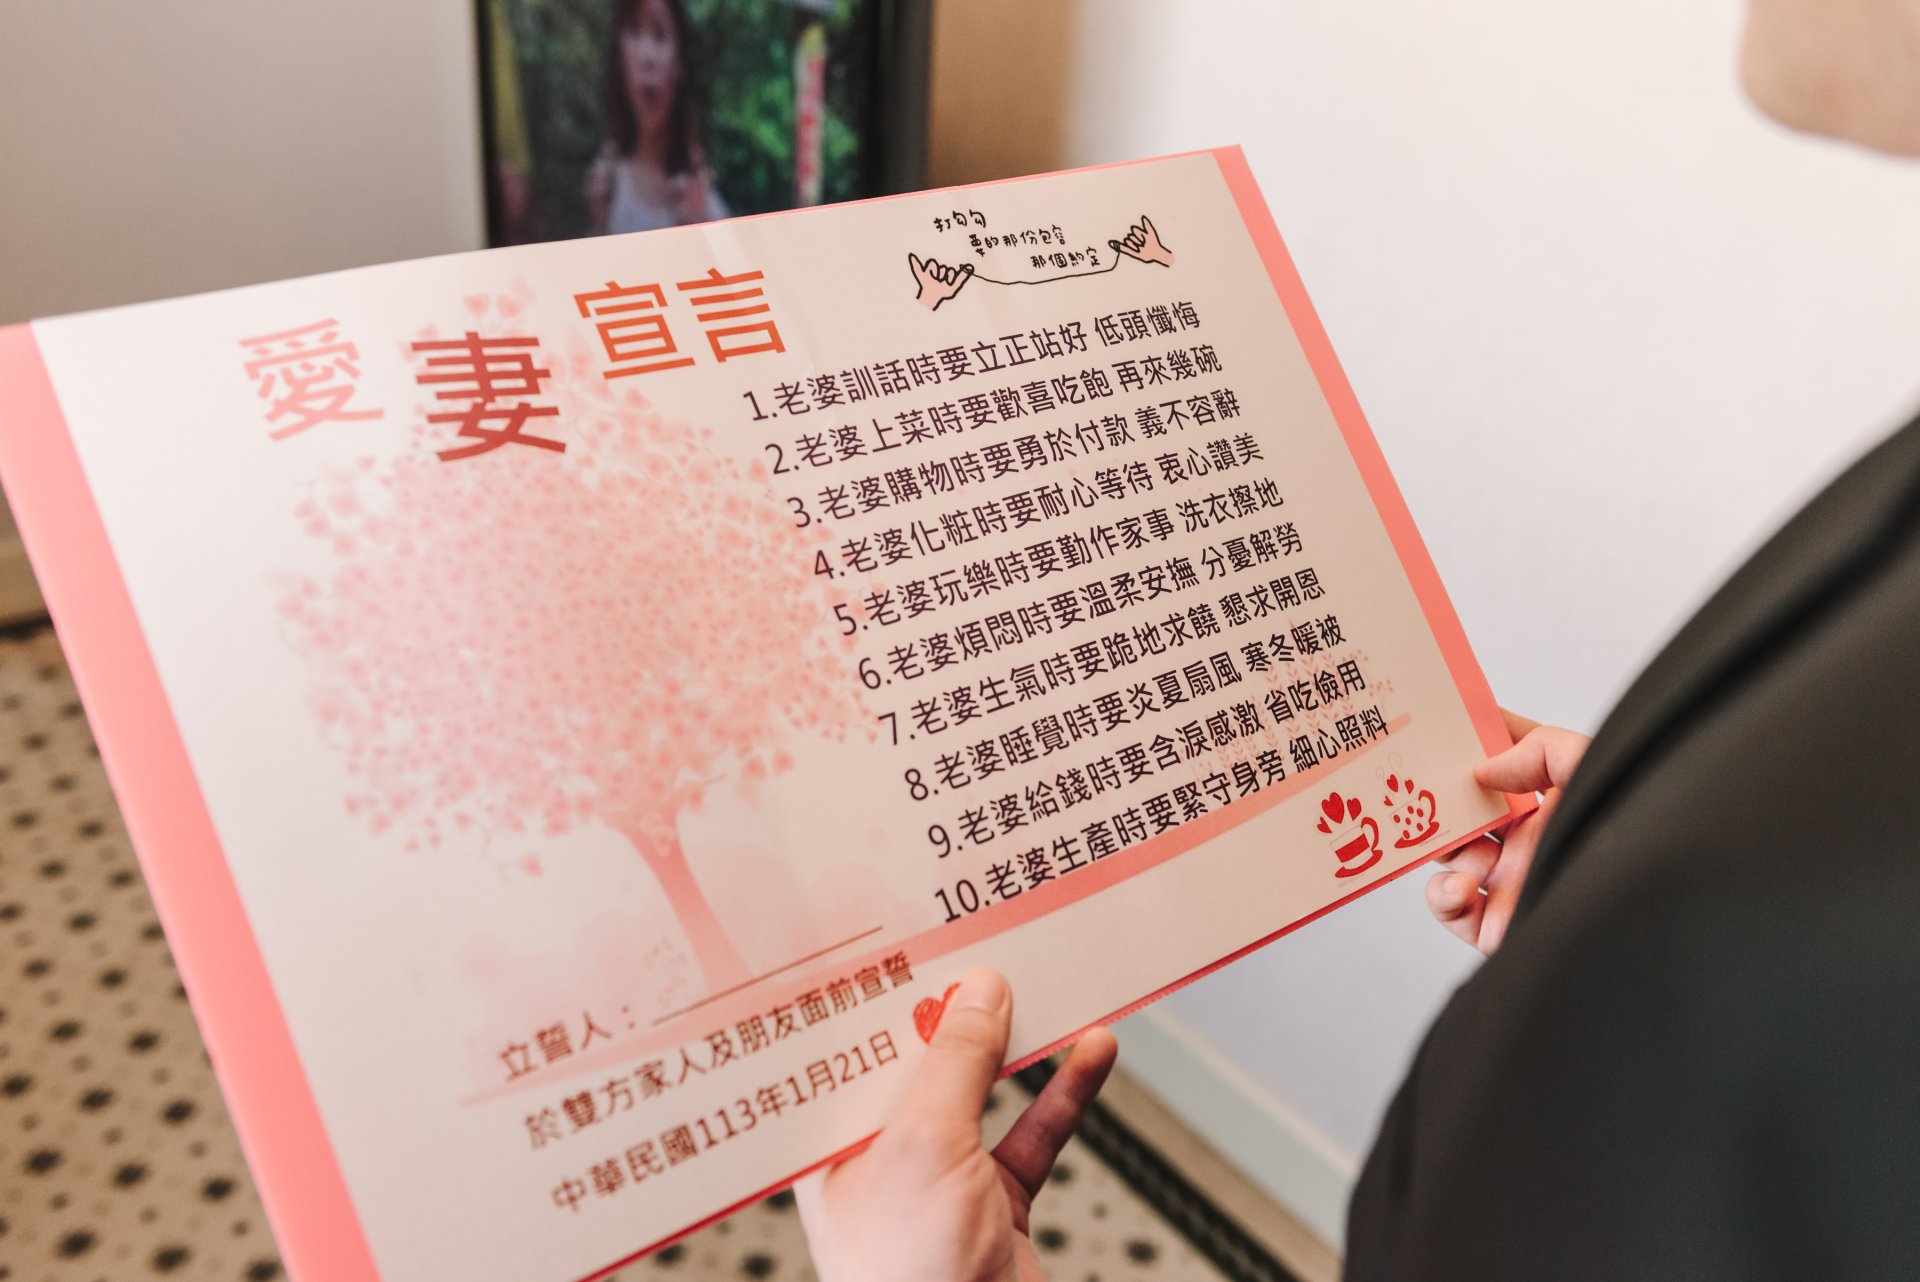 愛妻宣言
打勾勾
要的那份包容
那個約定
1.老婆訓話時要立正站好 低頭懺悔
2.老婆上菜時要歡喜吃飽 再來幾碗
3.老婆購物時要勇於付款 義不容辭
4.老婆化粧時要耐心等待 衷心讚美
5.老婆玩樂時要勤作家事 洗衣擦地
6.老婆煩悶時要溫柔安撫 分憂解勞
7.老婆生氣時要跪地求饒 懇求開恩
8.老婆睡覺時要炎夏扇風 寒冬暖被
9.老婆給錢時要含淚感激 省吃儉用
10.老婆生產時要緊守身旁 細心照料
立誓人：
於雙方家人及朋友面前宣誓
中華民國113年1月21日